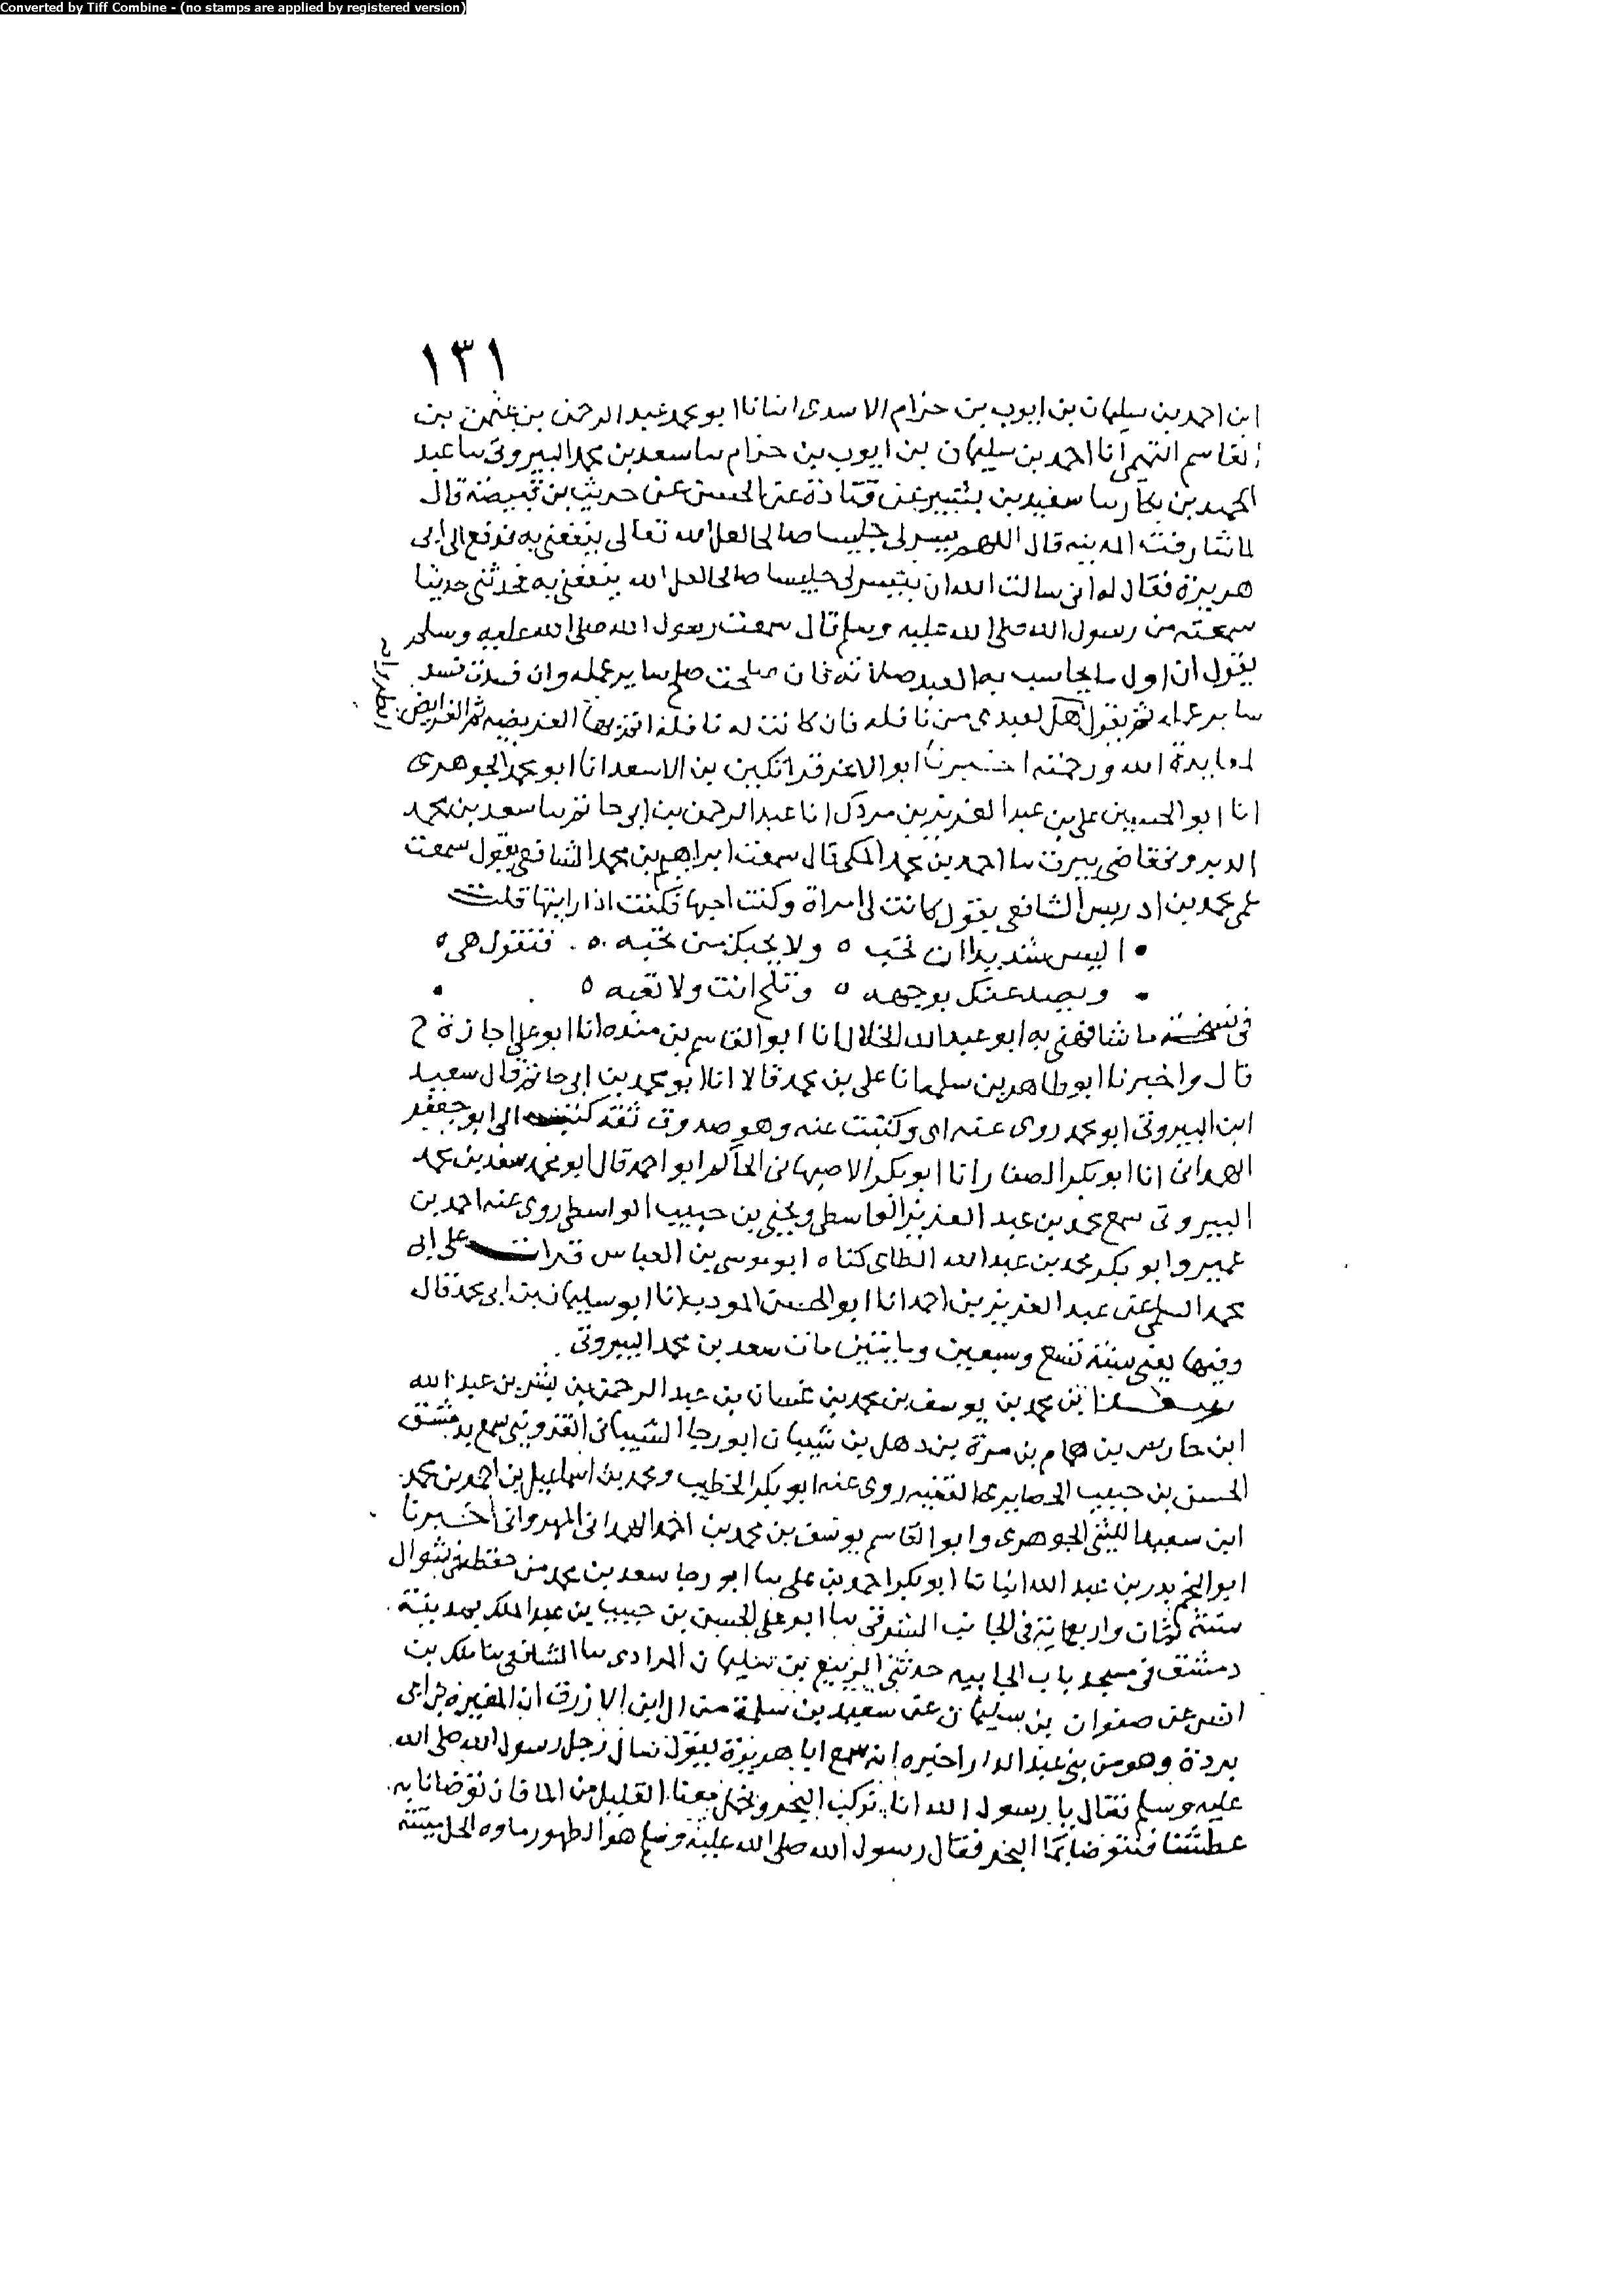 Converted by Tiff Combine - (no stamps are applied by registered version)
١٣١
ابن احمد بن سليمان بن ايوب بن حزام الاسدى انبانا ابو محمد عبد الرحمن بن عثمن بن
القاسم التميمى انا احمد بن سليمان بن ايوب بن حزام سا سعد بن محمد البيروتى سا عبد
الحميد بن بكار سا سعيد بن بشير عن قتادة عن الحسن عن حريث بن قبيصة قال
لما شارفت المدينه قال اللهم يسر لى جليسا صالحا لعل الله تعالى ينفعنى به فدفع الى ابى
هريرة فقال له انى سالت الله ان ييسر لى جليسا صالحا لعل الله ينفعنى به فحدثنى حديثا
سمعته من رسول الله صلى الله عليه وسلم قال سمعت رسول الله صلى الله عليه وسلم
يقول ان اول ما يحاسب به العبد صلاته فان صلحت صلح ساير عمله وان فسدت فسد
ساير عمله ثم يقول هل لعبدى من نافله فان كانت له نافلة اتم بها الفريضه ثم الفرايض
لعايدة الله ورحمته اخبرنا ابو الاغر قراتكين بن الاسعد انا ابو محمد الجوهرى
انا ابو الحسين على بن عبد العزيز بن مردك انا عبد الرحمن بن ابى حاتم سا سعد بن محمد
البيروتى قاضى بيرت سا احمد بن محمد المكى قال سمعت ابراهيم بن محمد الشافعى يقول سمعت
عمى محمد بن ادريس الشافعى يقول كانت لى امراة وكنت احبها فكنت اذا رايتها قلت
اليس شديدا ان تحب ٥ ولا يحبك من تحبه ٥ فتقول هى ٥
ويصد عنك بوجهه ٥ وتلح انت ولا تغبه ٥
فى نسخة ما شافهنى به ابو عبد الله الخلال انا ابو القاسم بن منده انا ابو على اجازة ح
قال واخبرنا ابو طاهر بن سلمه انا على بن محمد قالا انا ابو محمد بن ابى حاتم قال سعيد
ابن البيروتى ابو محمد روى عنه ابى وكتبت عنه وهو صدوق ثقة كتب الى ابو جعفر
الهمدانى انا ابو بكر الصفار انا ابو بكر الاصبهانى انا الحاكم ابو احمد قال ابو محمد سعد بن محمد
البيروتى سمع محمد بن عبد العزيز الواسطى ويحيى بن حبيب الواسطى روى عنه احمد بن
عمير وابو بكر محمد بن عبد الله الطاى كناه ابو موسى بن العباس قرات على ابى
محمد السلمى عن عبد العزيز بن احمد انا ابو الحسن المودب انا ابو سليمان بن ابى محمد قال
وفيها يعنى سنة تسع وسبعين ومايتين مات سعد بن محمد البيروتى
بن محمد بن يوسف بن محمد بن غسان بن عبد الرحمن بن بشر بن عبد الله
ابن حارس بن همام بن مرة بن دهل بن شيبان ابو رجا الشيبانى القزوينى سمع بدمشق
الحسن بن حبيب الحصايرى الفقيه روى عنه ابو بكر الخطيب ومحمد بن اسماعيل بن احمد بن محمد
ابن سعيد الليثى الجوهرى وابو القاسم يوسف بن محمد بن احمد الهمدانى المهروانى اخبرنا
ابو النجم بدر بن عبد الله انبانا ابو بكر احمد بن على سا ابو رجا سعد بن محمد من حفظه فى شوال
سنة ثمان واربعماية فى الجانب الشرقى سا ابو على الحسن بن حبيب بن عبد الملك بمدينة
دمشق فى مسجد باب الجابيه حدثنى الربيع بن سليمان المرادى سا الشافعى سا ملك بن
انس عن صفوان بن سليمان عن سعيد بن سلمة من ال ابن الازرق ان المغيرة بن ابى
بردة وهو من بنى عبد الدار اخبره انه سمع ابا هريرة يقول سال رجل رسول الله صلى الله
عليه وسلم فقال يا رسول الله انا نركب البحر ونحمل معنا القليل من الما فان توضانا به
عطشنا فنتوضا بما البحر فقال رسول الله صلى الله عليه وسلم هو الطهور ماوه الحل ميتته